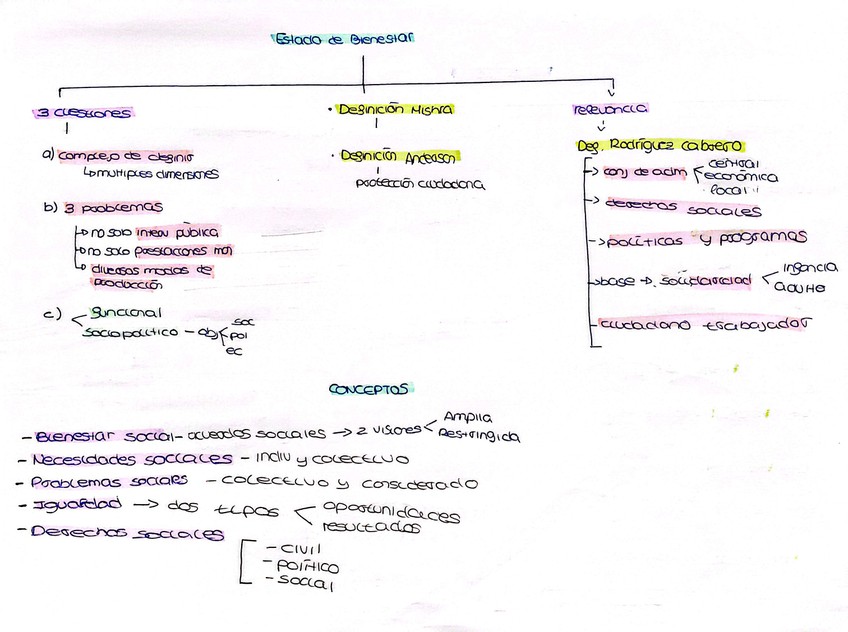 Estado de Bienestar
3 cuestiones
a) complejo de definir
↳ multiples dimensiones
b) 3 problemas
no solo interv pública
no solo prestaciones
diversas modos de
producción
c) funcional
sociopolítico - obj
soc
pol
ec
· Definición Mishra
· Definición Anderson
protección ciudadana
relevancia
Def. Rodríguez Cabrero
-> conj de acim
central
económica
local
-> derechos sociales
-> políticas y programas
base -> solidaridad
infancia
adulto
- ciudadano trabajador
CONCEPTOS
- Bienestar social - acuerdos sociales -> 2 visiones
Amplia
Restringida
- Necesidades sociales - indiv y colectivo
- Problemas sociales - colectivo y considerado
- Igualdad -> dos tipos
oportunidades
resultados
- Derechos sociales
- civil
- político
- social